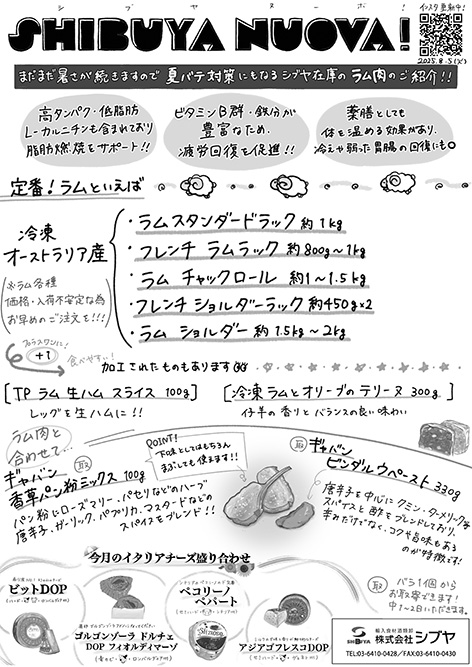 シブヤヌーボ!
SHIBUYA NUOVA!
インスタ更新中!
2025.8.5(火)
まだまだ暑さが続きますので 夏バテ対策にもなる シブヤ在庫の ラム肉のご紹介!!
高タンパク・低脂肪
L-カルニチンも含まれており
脂肪燃焼をサポート!!
ビタミンB群・鉄分が
豊富なため、
疲労回復を促進!!
薬膳としても
体を温める効果があり、
冷えや弱った胃腸の回復にも◎
定番!ラムといえば
冷凍
オーストラリア産
(※ラム各種
価格・入荷不安定な為
お早めのご注文を!!!)
・ラムスタンダードラック 約1kg
・フレンチ ラムラック 約800g〜1kg
・ラム チャックロール 約1〜1.5kg
・フレンチ ショルダーラック 約450g×2
・ラム ショルダー 約1.5kg〜2kg
プラスワンに!
+1
食べやすい!
加工されたものもあります
[TP ラム 生ハム スライス 100g]
レッグを生ハムに!!
[冷凍 ラムとオリーブのテリーヌ 300g]
仔羊の香りとバランスの良い味わい
ラム肉と
合わせて…
ギャバン 取
香草パン粉ミックス 100g
パン粉にローズマリー、パセリなどのハーブ
唐辛子、ガーリック、パプリカ、マスタードなどの
スパイスをブレンド!!
POINT!
下味としてはもちろん
まぶしても使えます!!
取 ギャバン
ビンダルウペースト 330g
唐辛子を中心にクミン、ターメリック等
スパイスと酢をブレンドしており、
辛みだけでなく、コクや旨味もある
のが特徴です!
今月のイタリアチーズ盛り合わせ
ビットDOP
ゴルゴンゾーラ ドルチェ
DOP フィオルディマーゾ
ペコリーノ
ペパート
アジアゴフレスコDOP
取 バラ1個から
お取寄せできます!
中1〜2日いただきます。
SHIBUYA
輸入食材酒類卸
株式会社シブヤ
TEL:03-6410-0428/FAX:03-6410-0430